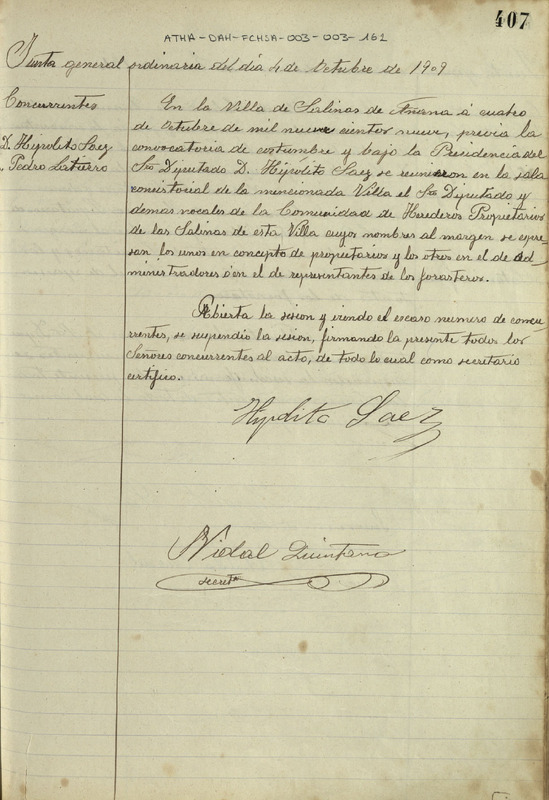 407
ATHA-DAH-FCHSA-003-003-162
Junta general ordinaria del día 4 de Octubre de 1909
Concurrentes
D. Hipólito Saez
" Pedro
En la Villa de Salinas de Añana á cuatro
de Octubre de mil nueve cientos nueve, previa la
convocatoria de costumbre y bajo la Presidencia del
Sr. Diputado D. Hipólito Saez se reunieron en la sala
consistorial de la mencionada Villa el Sr. Diputado y
demas vocales de la Comunidad de Herederos Propietarios
de las Salinas de esta Villa cuyos nombres al margen se expre-
san los unos en concepto de propietarios y los otros en el de ad-
ministradores ó en el de representantes de los forasteros.
Abierta la sesion y viendo el escaso numero de concu-
rrentes, se suspendió la sesion, firmando la presente todos los
Señores concurrentes al acto, de todo lo cual como secretario
certifico.
Hypolito Saez
Vidal Quintana
secretº